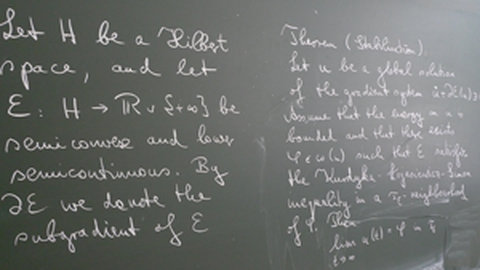 Let H be a Hilbert
space, and let
ℰ : H → ℝ ∪ {+∞} be
semiconvex and lower
semicontinuous. By
∂ℰ we denote the
subgradient of ℰ
Theorem (Stabilisation).
Let u be a global solution
of the gradient system u̇+∂ℰ(u)∋0
Assume that the energy
bounded and that there exists
φ ∈ ω(u) such that ℰ satisfies
the Kurdyka-Łojasiewicz-Simon
inequality in a neighbourhood
of φ. Then
lim u(t) = φ in
t→∞